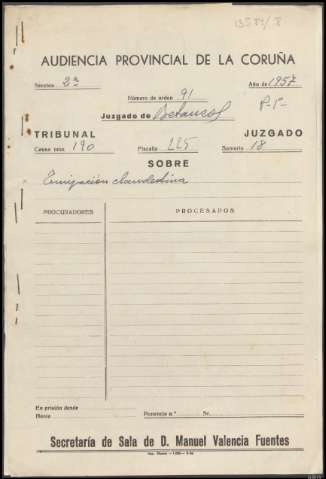 AUDIENCIA PROVINCIAL DE LA CORUÑA
Sección 2ª Año de 1957
Número de orden 91
Juzgado de Betanzos
TRIBUNAL JUZGADO
Causa núm. 190 Fiscalía 225 Sumario 18
SOBRE
Emigración clandestina
PROCURADORES PROCESADOS
En prisión desde
Planta Ponencia n.º Sr.
Secretaría de Sala de D. Manuel Valencia Fuentes